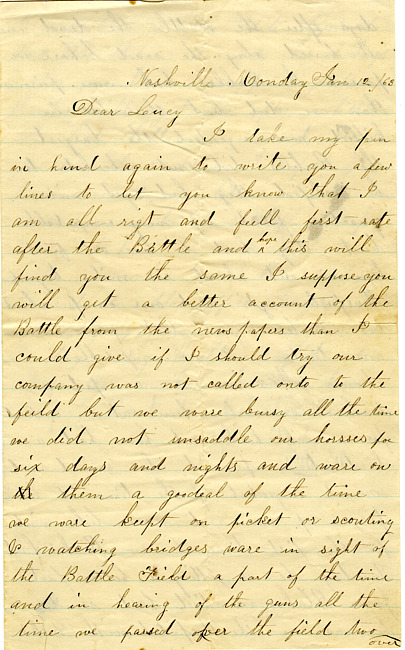 Nashville Monday Jan 12 /63
Dear Lucy
I take my pen
in hind again to write you a few
lines to let you know that I
am all rigt and feell first rate
after the Battle and hope this will
find you the same I suppose you
will get a better account of the
Battle from the news papers than I
could give if I should try our
company was not called onto to the
feild but we ware bussy all the time
we did not unsaddle our horsses for
six days and nights and ware on
them a goodeal of the time
we ware keept on picket or scouting
& watching bridges ware in sight of
the Battle Field a part of the time
and in hearing of the guns all the
time we passed over the field two
over